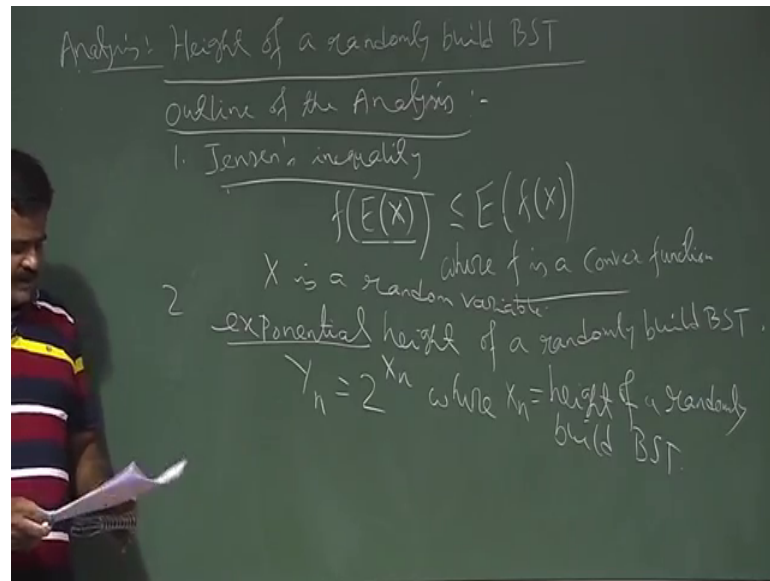 Analysis:- Height of a randomly build BST
Outline of the Analysis :-
1. Jensen's inequality
f(E(X)) ≤ E(f(X))
where f is a convex function
X is a random variable.
2 exponential height of a randomly build BST.
Yn = 2^Xn where Xn = height of a randomly
build BST.